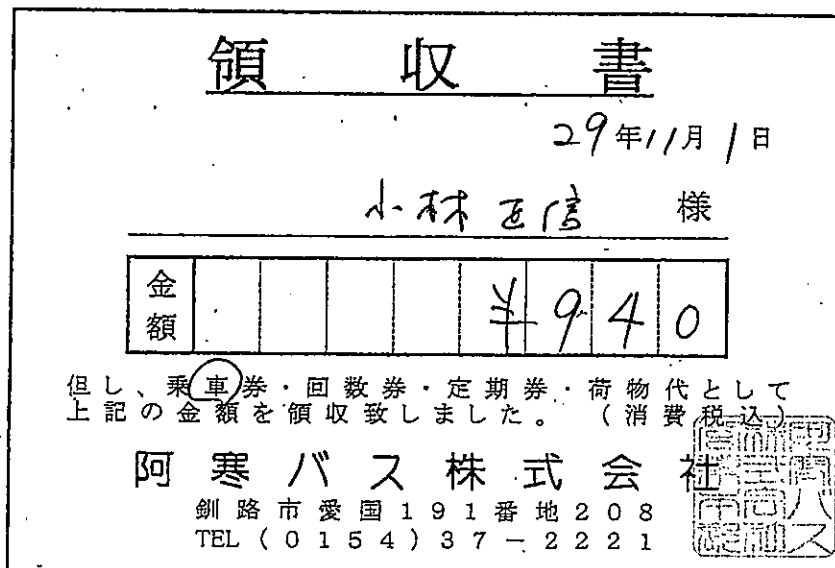 領収書
29年11月1日
小林正信 様
金額 ¥940
但し、乗車券・回数券・定期券・荷物代として
上記の金額を領収致しました。（消費税込）
阿寒バス株式会社
釧路市愛国191番地208
TEL(0154)37-2221